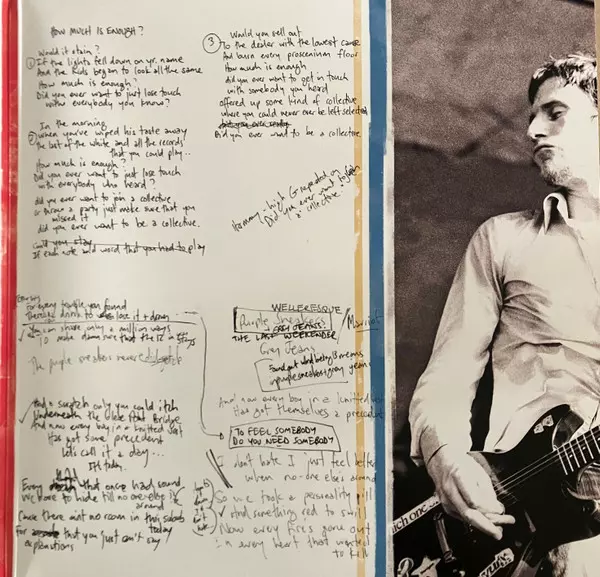 HOW MUCH IS ENOUGH?
Would it stain?
① If the lights fell down on yr. name
And the kids began to look all the same
How much is enough?
Did you ever want to just lose touch
with everybody you know?
In the morning
② when you've wiped his taste away
the last of the white and all the records
that you could play..
How much is enough?
Did you ever want to just lose touch
with everybody who heard?
did you ever want to join a collective
or throw a party just make sure that you
missed it
did you ever want to be a collective.
Could you stay
If each note and word that you had to play
③ Would you sell out
To the dealer with the lowest
And burn every proscenium floor
How much is enough
did you ever want to get in touch
with somebody you heard
offered up some kind of collective
where you could never ever be left selected
Did you ever want to be a collective
Harmony - high G repeated on
Did you ever want to
a collective.
For every trouble you found
down
You can shave only a million ways
To make damn sure that the in stays
The purple sneakers never
And a scratch only you could itch
Underneath the Glebe Point Bridge
And now every boy in a knitted
Has got some precedent
Let's call it a day...
Every that once had sound
we have to hide till no-one else is
around
Cause there aint no room in this suburb
today
For that you just can't say
explanations
WELLERESQUE
Purple Sneakers
GREY JEANS?
THE LAST WEEKENDER
Grey Jeans
Found out what being 13 means
purple sneakers + grey jeans
And now every boy in a
Has got themselves a precedent
TO FEEL SOMEBODY
DO YOU NEED SOMEBODY
I don't hate I just feel better
when no-one else's around
So we took a personality pill
And something red to swill
Now every fire's gone out
in every heart that wanted
to kill